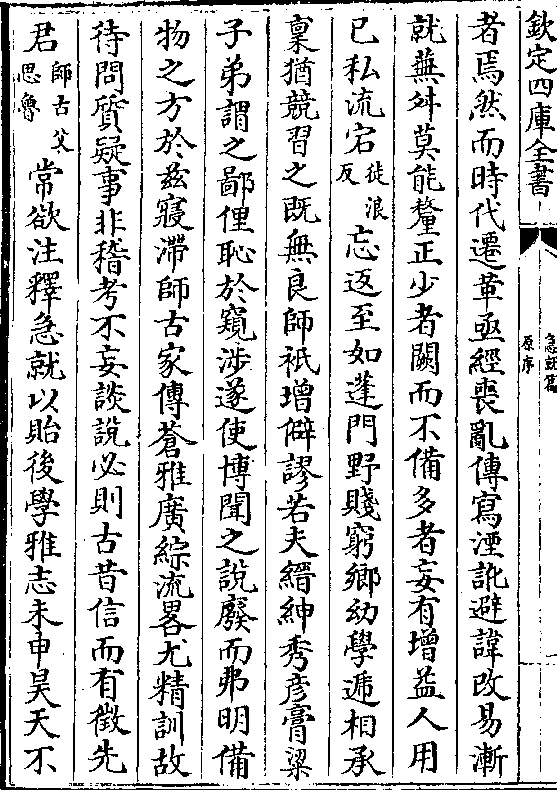 欽定四庫全書
急就篇
原序
者焉然而時代遷革亟經喪亂傳寫湮訛避諱改易漸
就蕪舛莫能釐正少者闕而不備多者妄有增益人用
已私流宕徒浪反忘返至如蓬門野賤窮鄉幼學遞相承
稟猶競習之既無良師祇增僻謬若夫縉紳秀彦膏粱
子弟謂之鄙俚恥於窺涉遂使博聞之說廢而弗明備
物之方於兹寢滯師古家傳蒼雅廣綜流畧尤精訓故
待問質疑事非稽考不妄談說必則古昔信而有徵先
君師古父思魯常欲注釋急就以貽後學雅志未申昊天不